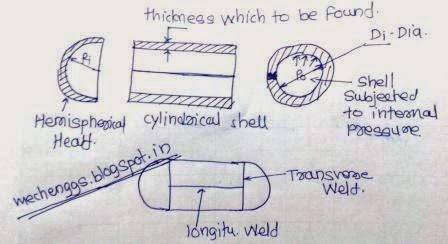 thickness which to be found.
Di-Dia.
Ri
Po
Shell
Subjected
to internal
pressure
Hemispherical
Head.
cylindrical shell
wechenggs.blogspot.in
Transverse
Weld.
longitu. Weld